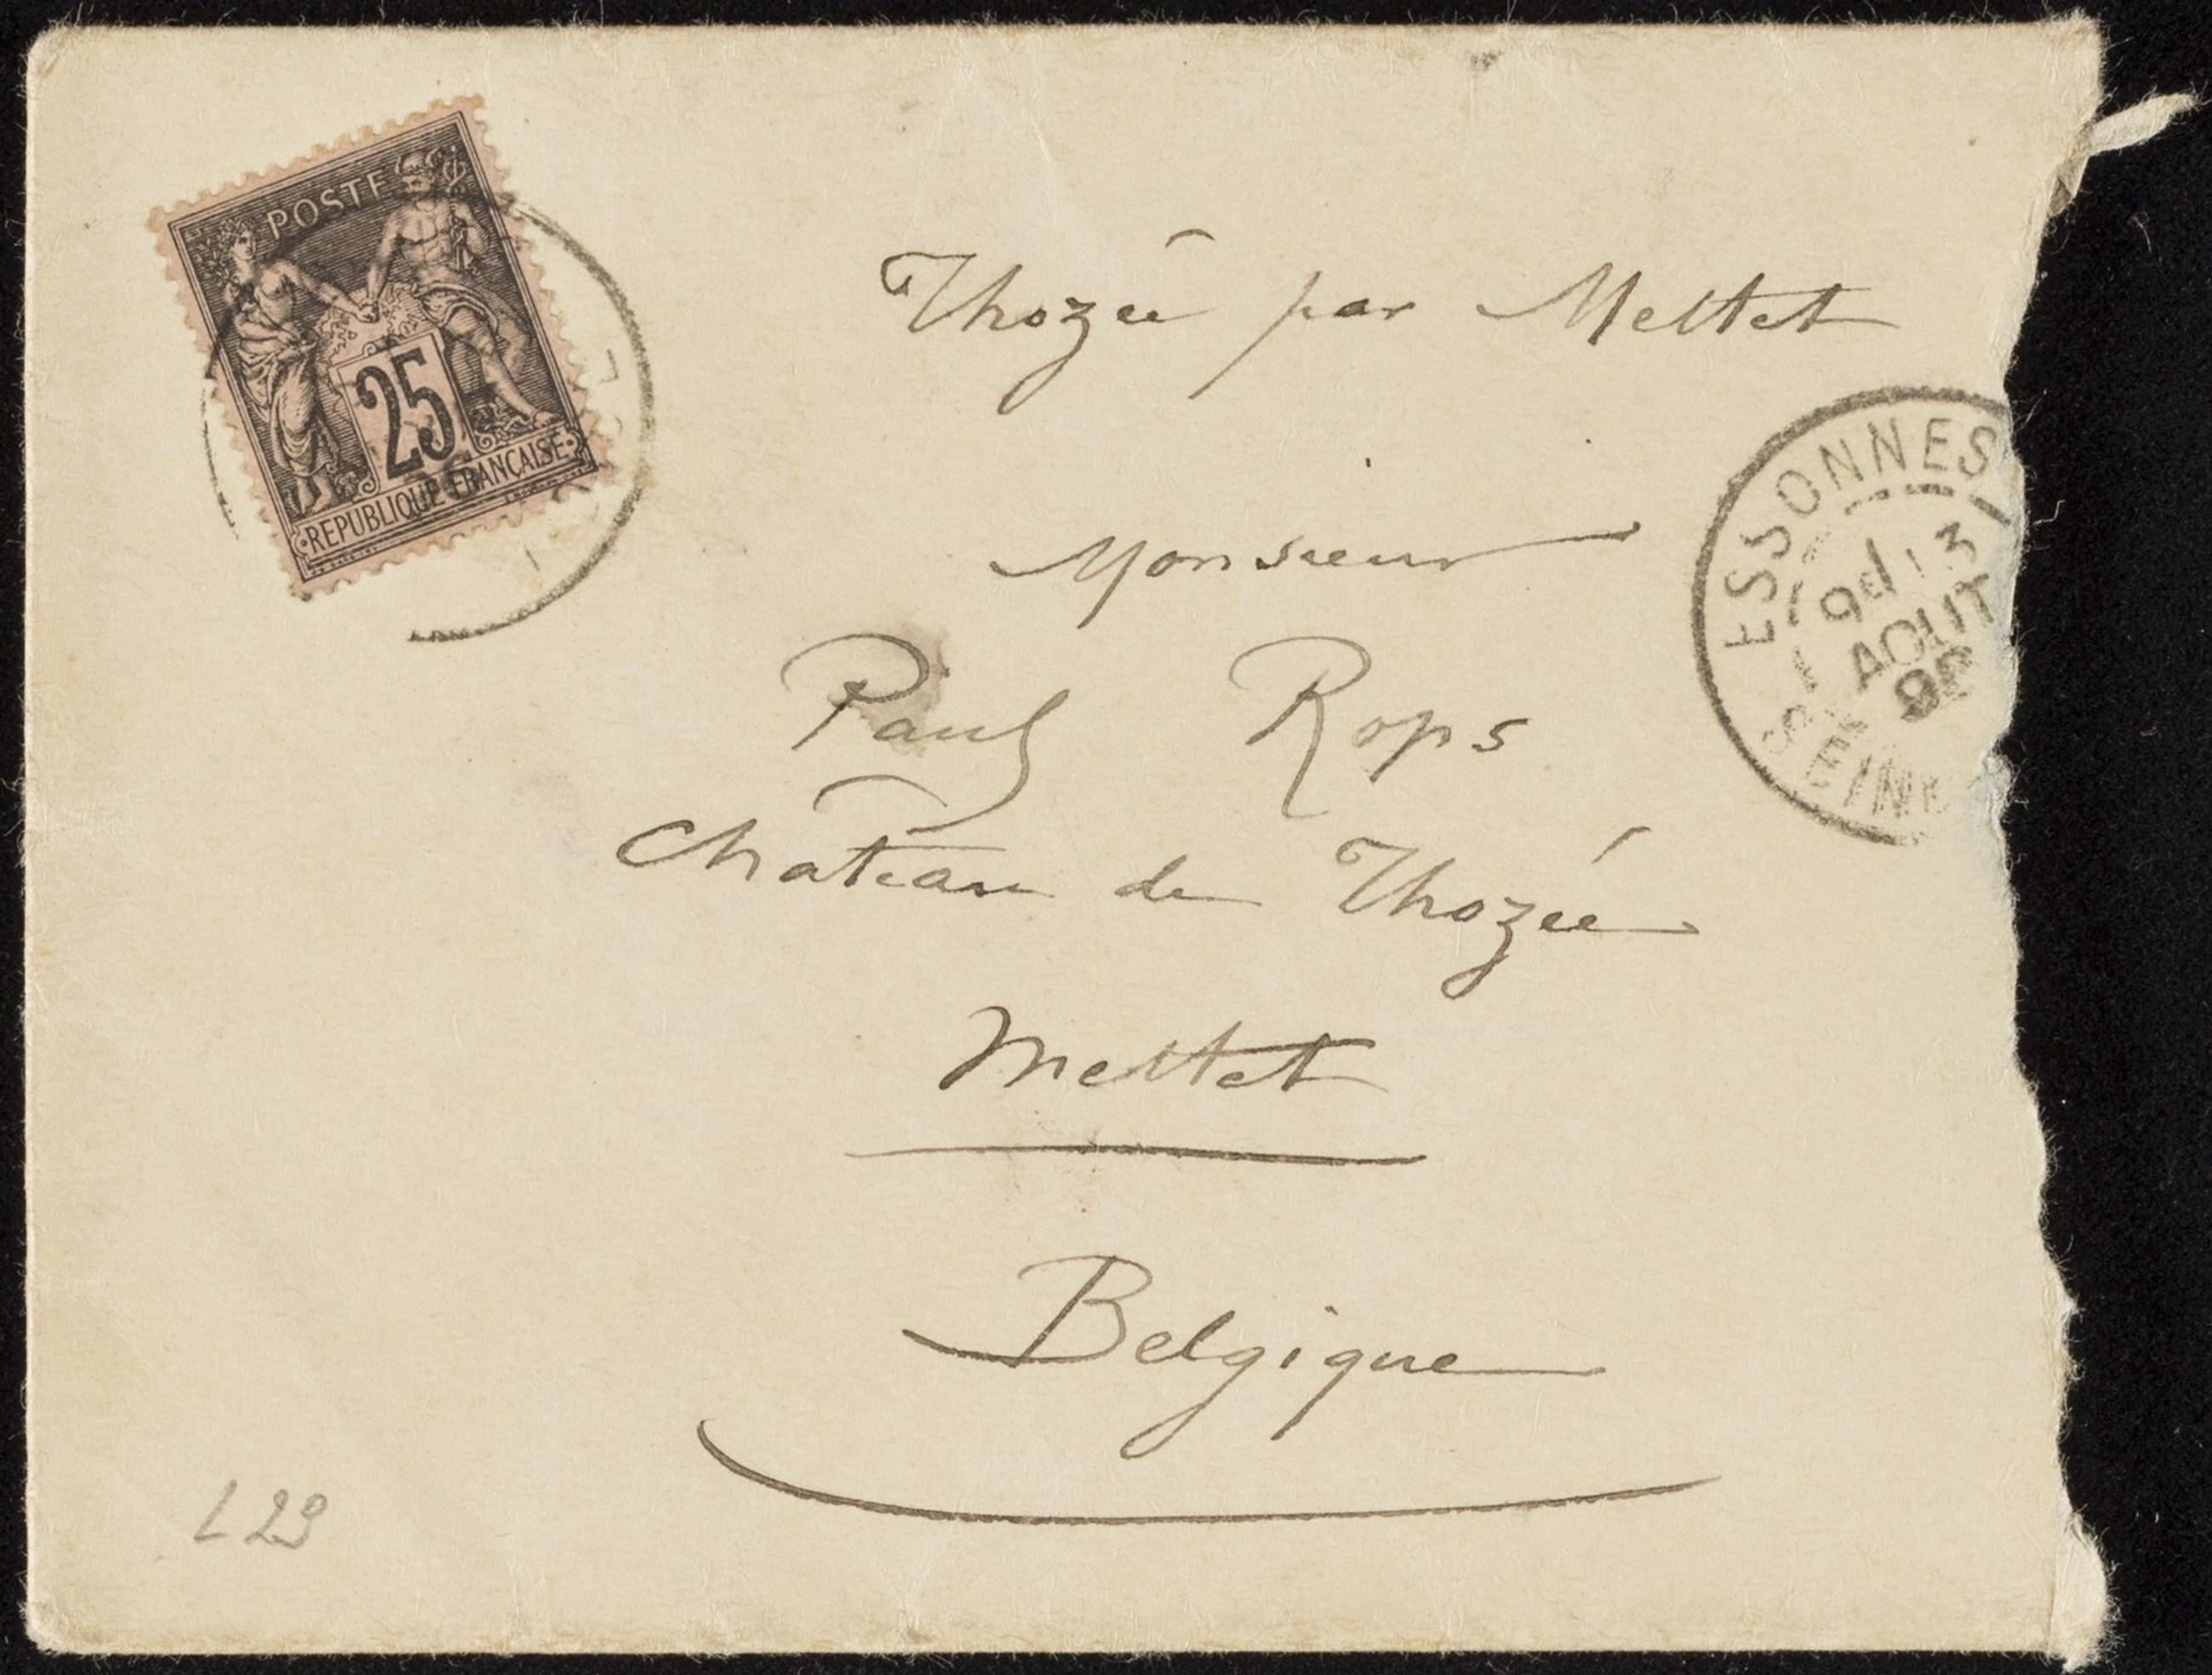 POSTE
25
REPUBLIQUE FRANÇAISE
Thozée par Mettet
ESSONNES
13
AOUT
SEINE
Monsieur
Paul Rops
Chateau de Thozée
Mettet
Belgique
L 29